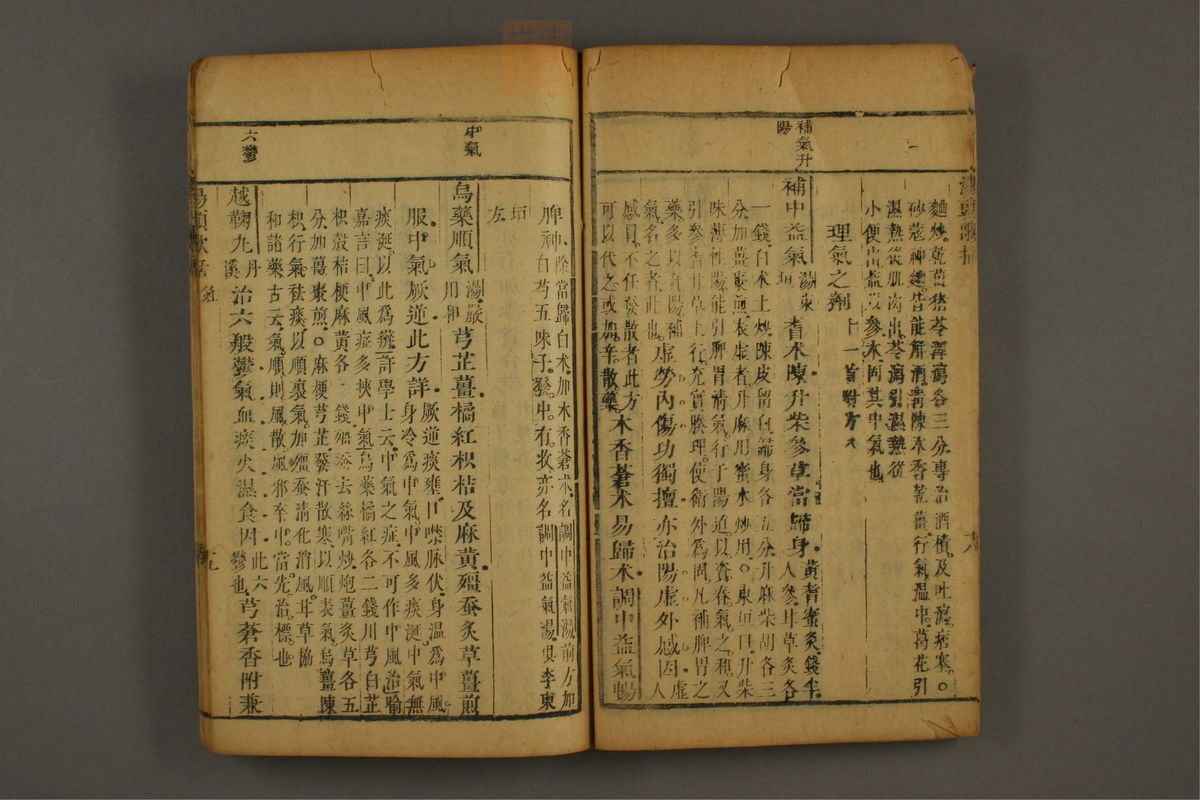 湯頭歌括
六
麯炒。乾薑豬苓澤瀉各三分專治酒積。及吐瀉痞塞。○
砂蔻神麯皆能解酒。青陳木香乾薑。行氣溫中。葛花引
濕熱從肌肉出。苓瀉引濕熱從
小便出。益以參朮。固其中氣也。
理氣之劑
補氣升
陽
補中益氣
湯東
垣
耆朮陳。升柴參草當歸身。
黃耆蜜炙錢半
人參。甘草炙各
一錢。白朮土炒陳皮留白歸身各五分。升麻柴胡各三
分。加薑棗煎。表虛者。升麻用蜜水炒用。○東垣曰。升柴
味薄性陽。能引脾胃清氣。行于陽道。以資春氣之和。又
引參耆甘草上行。充實腠理。使衛外為固。凡補脾胃之
藥。多以升陽補
氣名之者此也。
虛勞內傷功獨擅。亦治陽虛外感因。
虛人
感冒。不任發散者。此方
可以代之。或加辛散藥。
木香蒼朮易歸朮。調中益氣暢
脾神。
除當歸白朮。加木香蒼朮。名調中益氣湯。前方加
白芍五味子。發中有收。亦名調中益氣湯。俱李東
垣
方
中氣
烏藥順氣
湯嚴
用和
芎芷薑。橘紅枳桔及麻黃。殭蠶炙草薑煎
服。中氣厥逆此方詳。
厥逆痰壅。口噤脈伏。身溫為中風。
身冷為中氣。中風多痰涎。中氣無
痰涎。以此為辨。許學士云。中氣之症。不可作中風治。喻
嘉言曰。中風症多挾中氣。烏藥橘紅各二錢川芎白芷
枳殼桔梗麻黃各一錢殭蠶去絲嘴炒炮薑炙草各五
分。加薑棗煎。○麻梗芎芷。發汗散寒。以順表氣。烏薑陳
枳。行氣祛痰。以順裏氣。加殭蠶清化消風。甘草協
和諸藥。古云氣順則風散。風邪卒中。當先治標也。
六鬱
越鞠丸
丹
溪
治六般鬱。氣血痰火濕食因。
此六
鬱也。
芎蒼香附兼